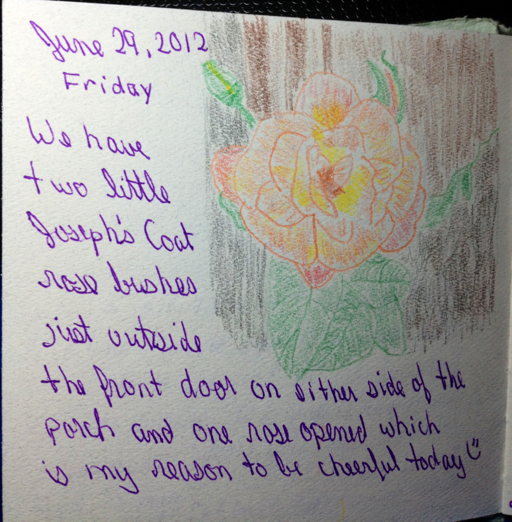 June 29, 2012
Friday
We have
two little
Joseph's Coat
rose bushes
just outside
the front door on either side of the
porch and one rose opened which
is my reason to be cheerful today